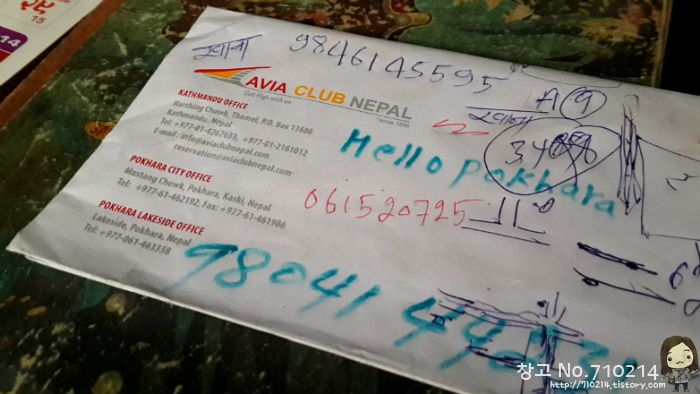 15
14
9846145595
AVIA CLUB NEPAL
since 1990
KATHMANDU OFFICE
Narshing Chowk, Thamel, P.O. Box 13680
Kathmandu, Nepal
Tel: +977-01-4267633, +977-01-2161012
E-mail: info@aviaclubnepal.com
reservation@aviaclubnepal.com
POKHARA CITY OFFICE
Mustang Chowk, Pokhara, Kaski, Nepal
Tel: +977-61-462192, Fax: +977-61-461986
POKHARA LAKESIDE OFFICE
Lakeside, Pokhara, Nepal
Tel: +977-061-463338
A 9
Hello pokhara
061520725
98041
창고 No.710214
http://710214.tistory.com/